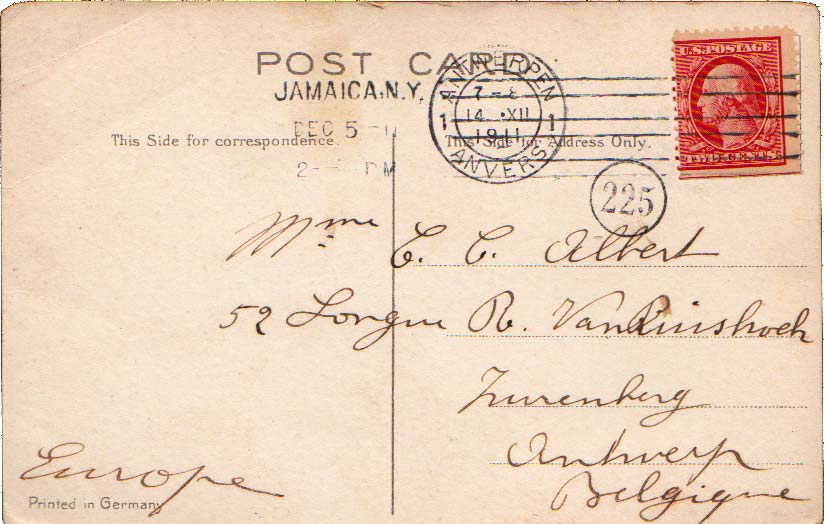 POST CARD
U.S. POSTAGE
JAMAICA, N.Y.
ANTWERPEN
7-8
14 XII
1911
1 1
ANVERS
DEC 5 - 11
2- PM
This Side for correspondence.
This Side for Address Only.
TWO CENTS
225
Mme C. C. Albert
52 Longue R. Van Ruisbroek
Zurenberg
Antwerp
Belgique
Europe
Printed in Germany